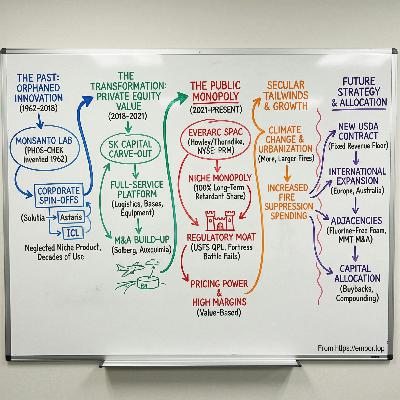 THE PAST:
ORPHANED
INNOVATION
(1962-2018)
MONSANTO LAB
(PHOS-CHEK
Invented 1962)
CORPORATE
SPIN-OFFS
(Solutia
Astaris
ICL
Neglected Niche Product,
Decades of Use
THE
TRANSFORMATION:
PRIVATE EQUITY
VALUE
(2018-2021)
SK CAPITAL
CARVE-OUT
FULL-SERVICE
PLATFORM
(Logistics, Bases,
Equipment)
M&A BUILD-UP
(Solberg, Auxquimia)
THE PUBLIC
MONOPOLY
(2021-PRESENT)
EVERARC SPAC
(Howley/Thorndike,
NYSE: PRM)
NICHE MONOPOLY
(100% Long-Term
Retardant Share)
REGULATORY MOAT
(USFS QPL, Fortress
Battle Fails)
PRICING POWER &
HIGH MARGINS
(Value-Based)
SECULAR
TAILWINDS
& GROWTH
CLIMATE
CHANGE &
URBANIZATION
(More, Larger Fires)
INCREASED
FIRE
SUPPRESSION
SPENDING
FUTURE
STRATEGY
& ALLOCATION
NEW USDA
CONTRACT
(Fixed Revenue Floor)
INTERNATIONAL
EXPANSION
(Europe, Australia)
ADJACENCIES
(Fluorine-Free Foam,
MMT M&A)
CAPITAL
ALLOCATION
(Buybacks,
Compounding)